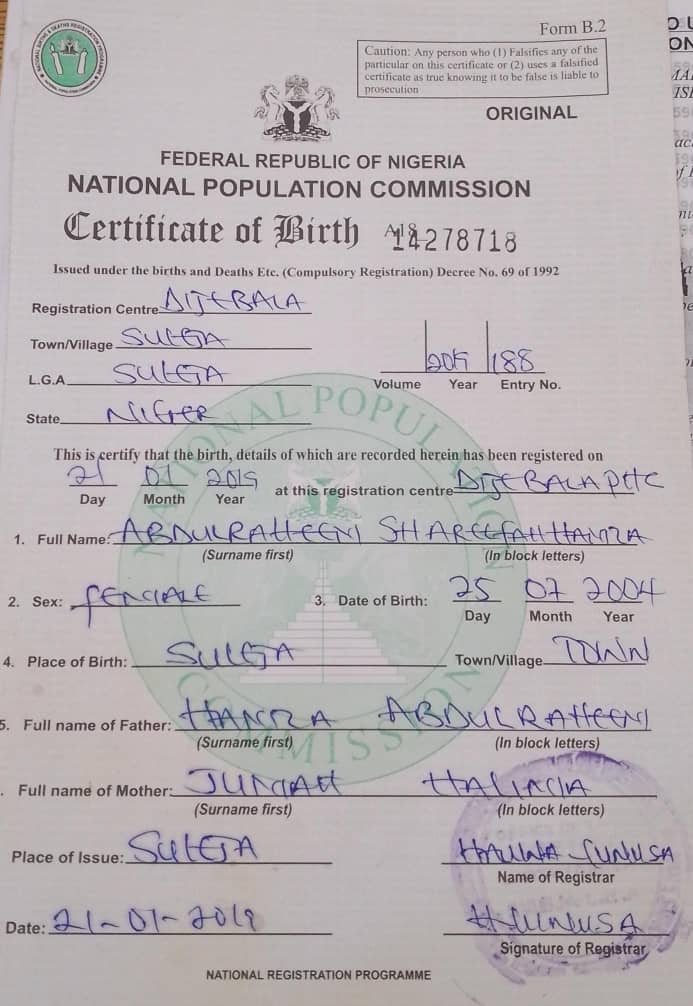 Form B.2
Caution: Any person who (1) Falsifies any of the
particular on this certificate or (2) uses a falsified
certificate as true knowing it to be false is liable to
prosecution
ORIGINAL
FEDERAL REPUBLIC OF NIGERIA
NATIONAL POPULATION COMMISSION
Certificate of Birth 14278718
Issued under the births and Deaths Etc. (Compulsory Registration) Decree No. 69 of 1992
Registration Centre DIJEBALA
Town/Village SULEJA
L.G.A SULEJA
2019 188
Volume Year Entry No.
State NIGER
This is certify that the birth, details of which are recorded herein has been registered on
21 01 2019 at this registration centre DIJEBALA PHC
Day Month Year
1. Full Name: ABDULRAHEEM SHAREEFAH HAMZA
(Surname first) (In block letters)
2. Sex: FEMALE 3. Date of Birth: 25 07 2004
Day Month Year
4. Place of Birth: SULEJA Town/Village TOWN
5. Full name of Father: HAMZA ABDULRAHEEM
(Surname first) (In block letters)
. Full name of Mother: JUMAH HALIMA
(Surname first) (In block letters)
Place of Issue: SULEJA HAUWA SUNUSA
Name of Registrar
Date: 21-01-2019 H SUNUSA
Signature of Registrar
NATIONAL REGISTRATION PROGRAMME
NATIONAL POPULATION COMMISSION